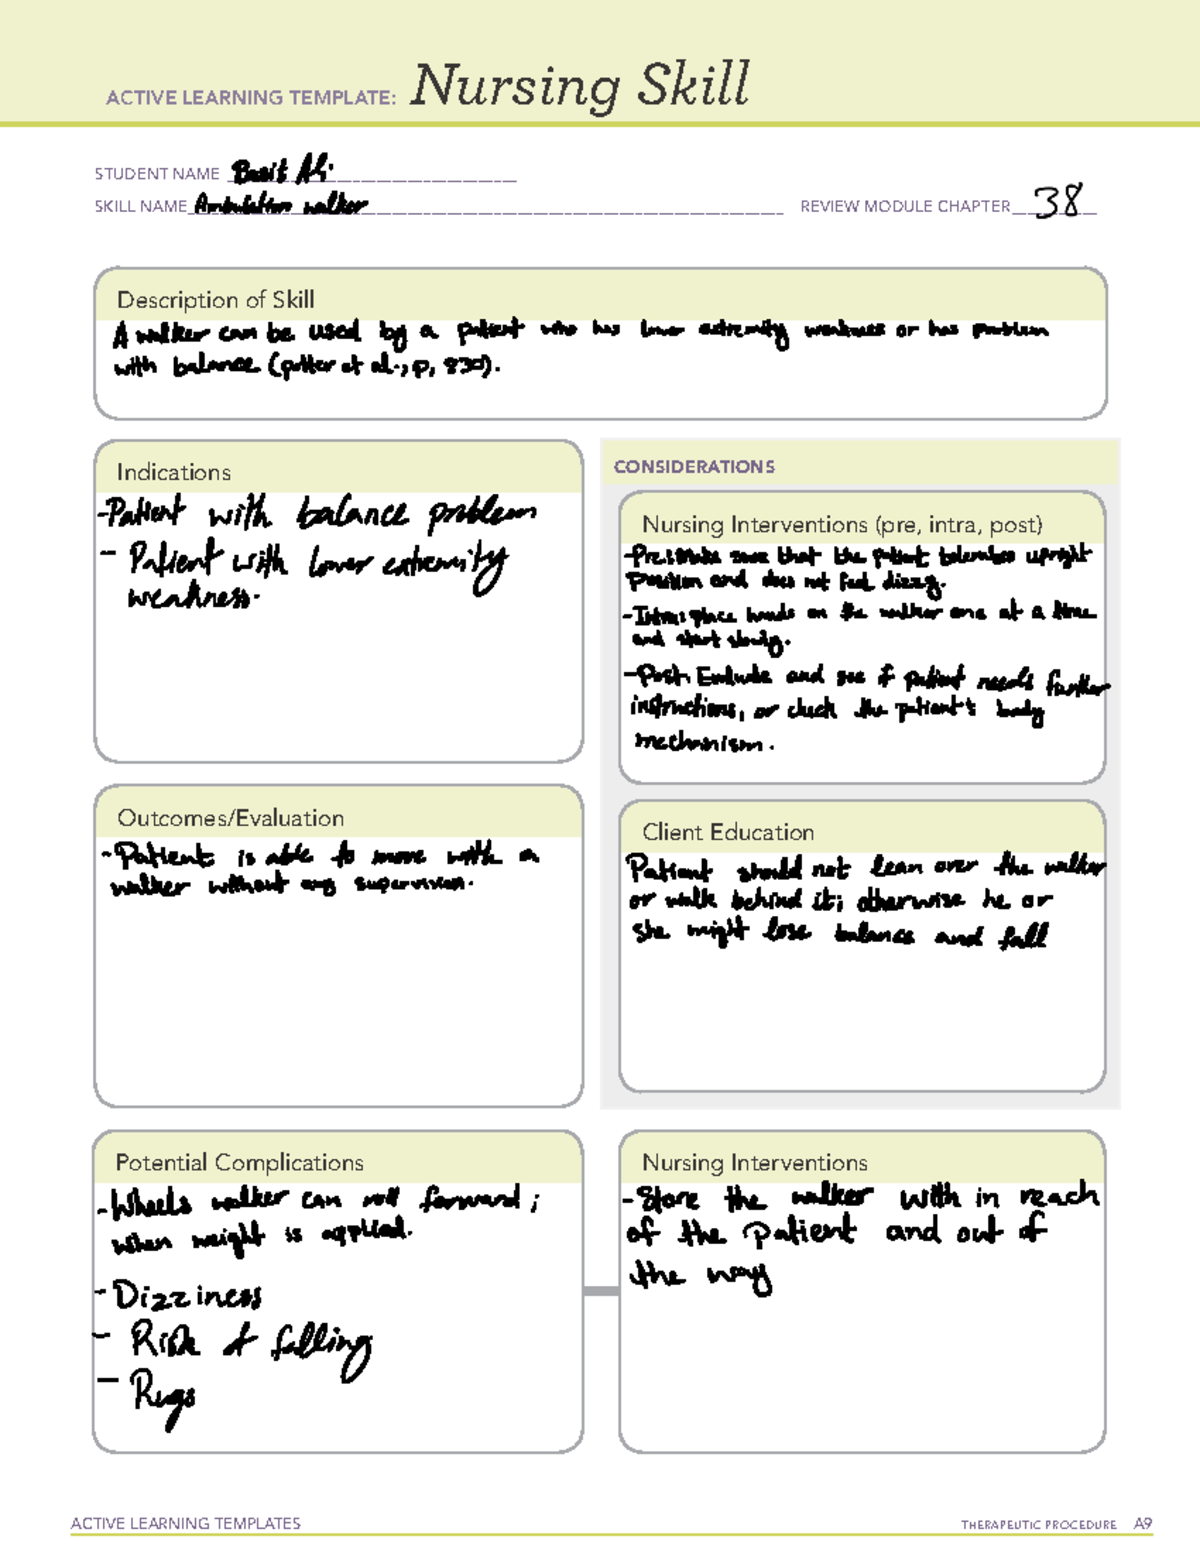 ACTIVE LEARNING TEMPLATE: Nursing Skill
STUDENT NAME Basit Ali
SKILL NAME Ambulation walker REVIEW MODULE CHAPTER 38
Description of Skill
A walker can be used by a patient who has lower extremity weakness or has problem
with balance (potter et al., p, 830).
Indications
-Patient with balance problem
- Patient with lower extremity
weakness.
CONSIDERATIONS
Nursing Interventions (pre, intra, post)
-Pre: Make sure that the patient tolerates upright
Position and does not feel dizzy.
-Intra: place hands on the walker one at a time
and start slowly.
-Post: Evaluate and see if patient needs further
instructions, or check the patient's body
mechanism.
Outcomes/Evaluation
-Patient is able to move with a
walker without any supervision.
Client Education
Patient should not lean over the walker
or walk behind it; otherwise he or
she might lose balance and fall
Potential Complications
-Wheels walker can roll forward;
when weight is applied.
-Dizziness
- Risk of falling
- Rugs
Nursing Interventions
-Store the walker with in reach
of the Patient and out of
the way
ACTIVE LEARNING TEMPLATES THERAPEUTIC PROCEDURE A9